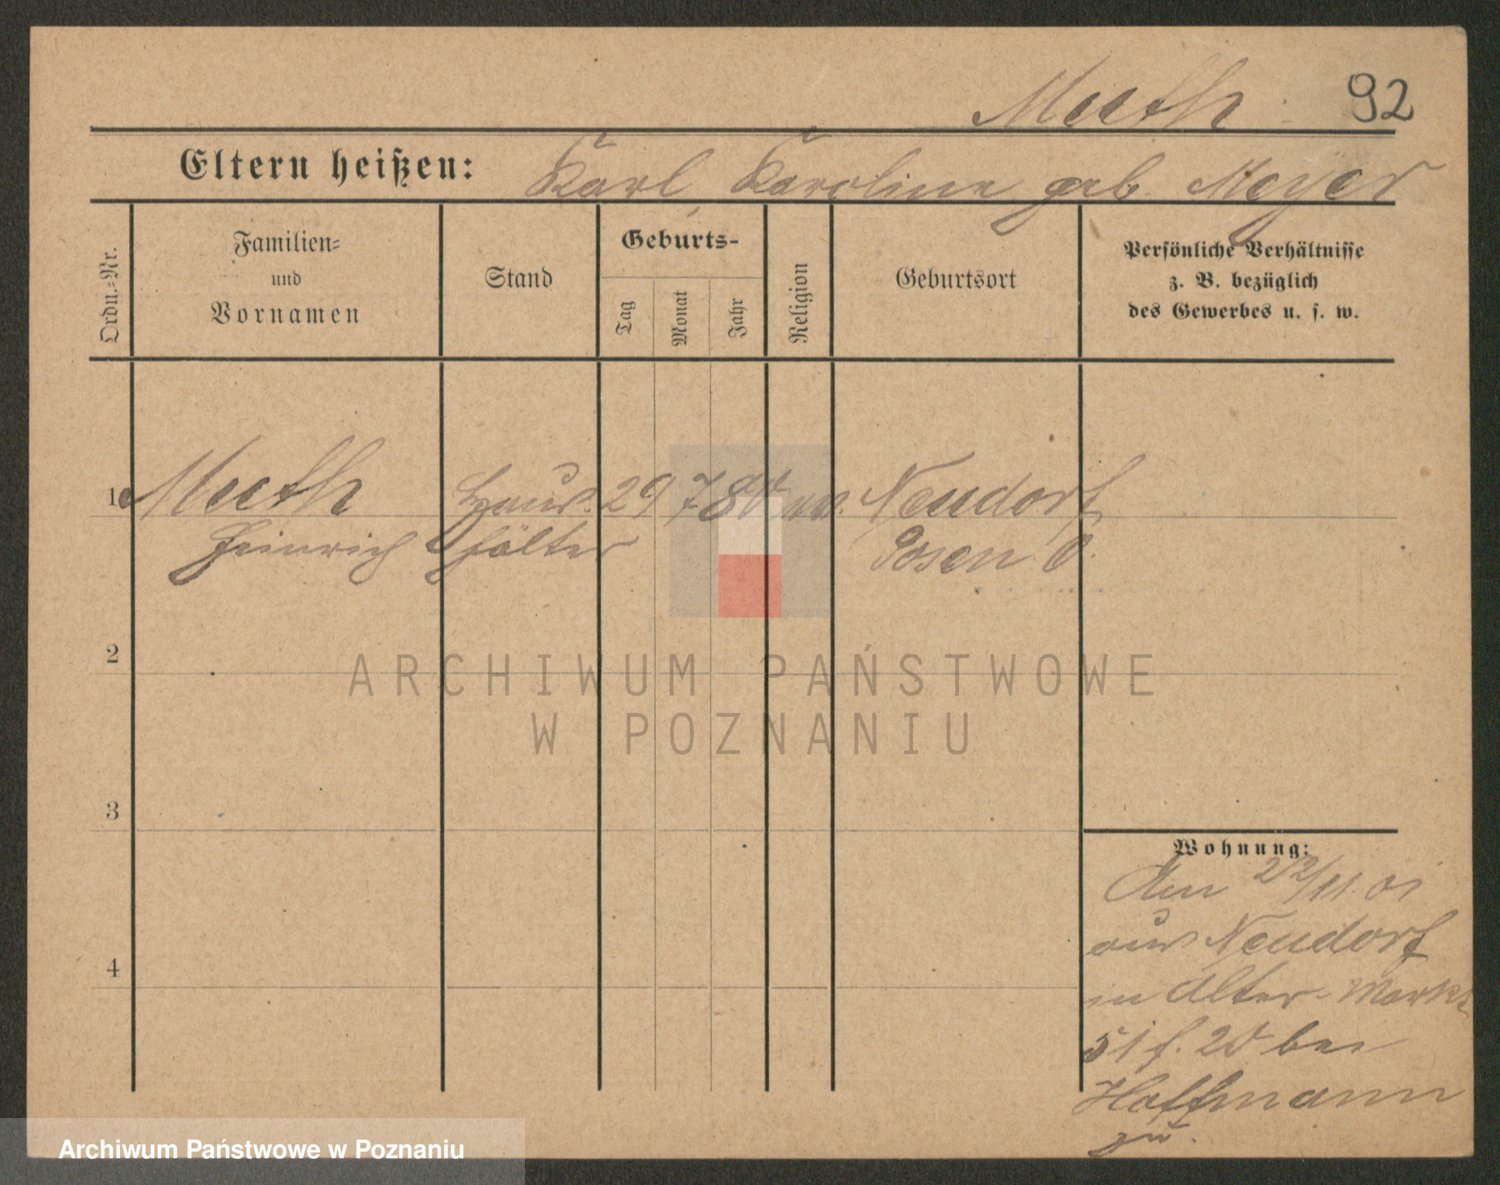 Muth 92
Eltern heißen: Karl, Karoline geb. Meyer
Ordn.-Nr.
Familien-
und
Vornamen
Stand
Geburts-
Tag
Monat
Jahr
Religion
Geburtsort
Persönliche Verhältnisse
z. B. bezüglich
des Gewerbes u. s. w.
1 Muth Haus- 29 7 80 Neudorf
Heinrich hälter Posen O.
2
ARCHIWUM PAŃSTWOWE
W POZNANIU
3
Wohnung:
Am 22/11 01
aus Neudorf
in Alter-Markt
51 f. 20 bei
Hoffmann
zu.
4
Archiwum Państwowe w Poznaniu